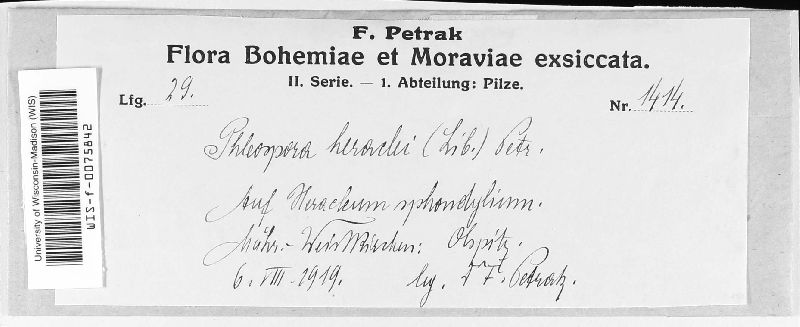 F. Petrak
Flora Bohemiae et Moraviae exsiccata.
II. Serie. — 1. Abteilung: Pilze.
Lfg. 29.
Nr. 1414.
Phleospora heraclei (Lib.) Petr.
Auf Heracleum sphondylium.
Mähr.-Weisskirchen: Olspitz.
6. VIII. 1919. lg. F. Petrak.
University of Wisconsin-Madison (WIS)
WIS-f-0075842